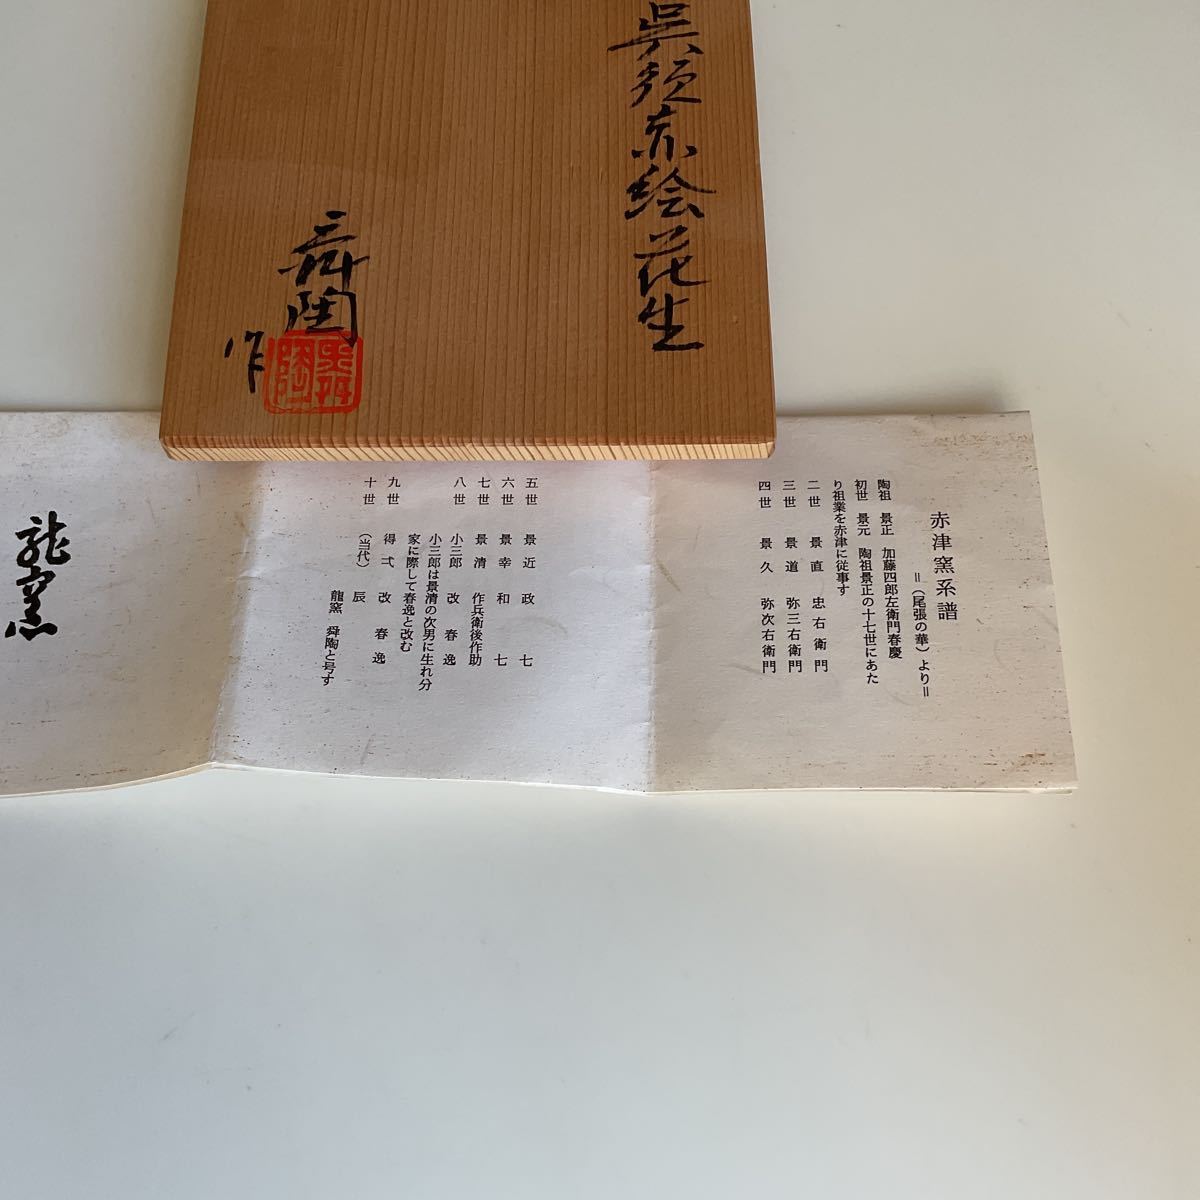 呉須赤絵花生
舜陶
作
赤津窯系譜
＝（尾張の華）より＝
陶祖 景正 加藤四郎左衛門春慶
初世 景元 陶祖景正の十七世にあた
り祖業を赤津に従事す
二世 景直 忠右衛門
三世 景道 弥三右衛門
四世 景久 弥次右衛門
五世 景近 政七
六世 景幸 和七
七世 景清 作兵衛後作助
八世 小三郎 改春逸
小三郎は景清の次男に生れ分
家に際して春逸と改む
九世 得弌 改春逸
十世 （当代） 辰
龍窯 舜陶と号す
龍窯